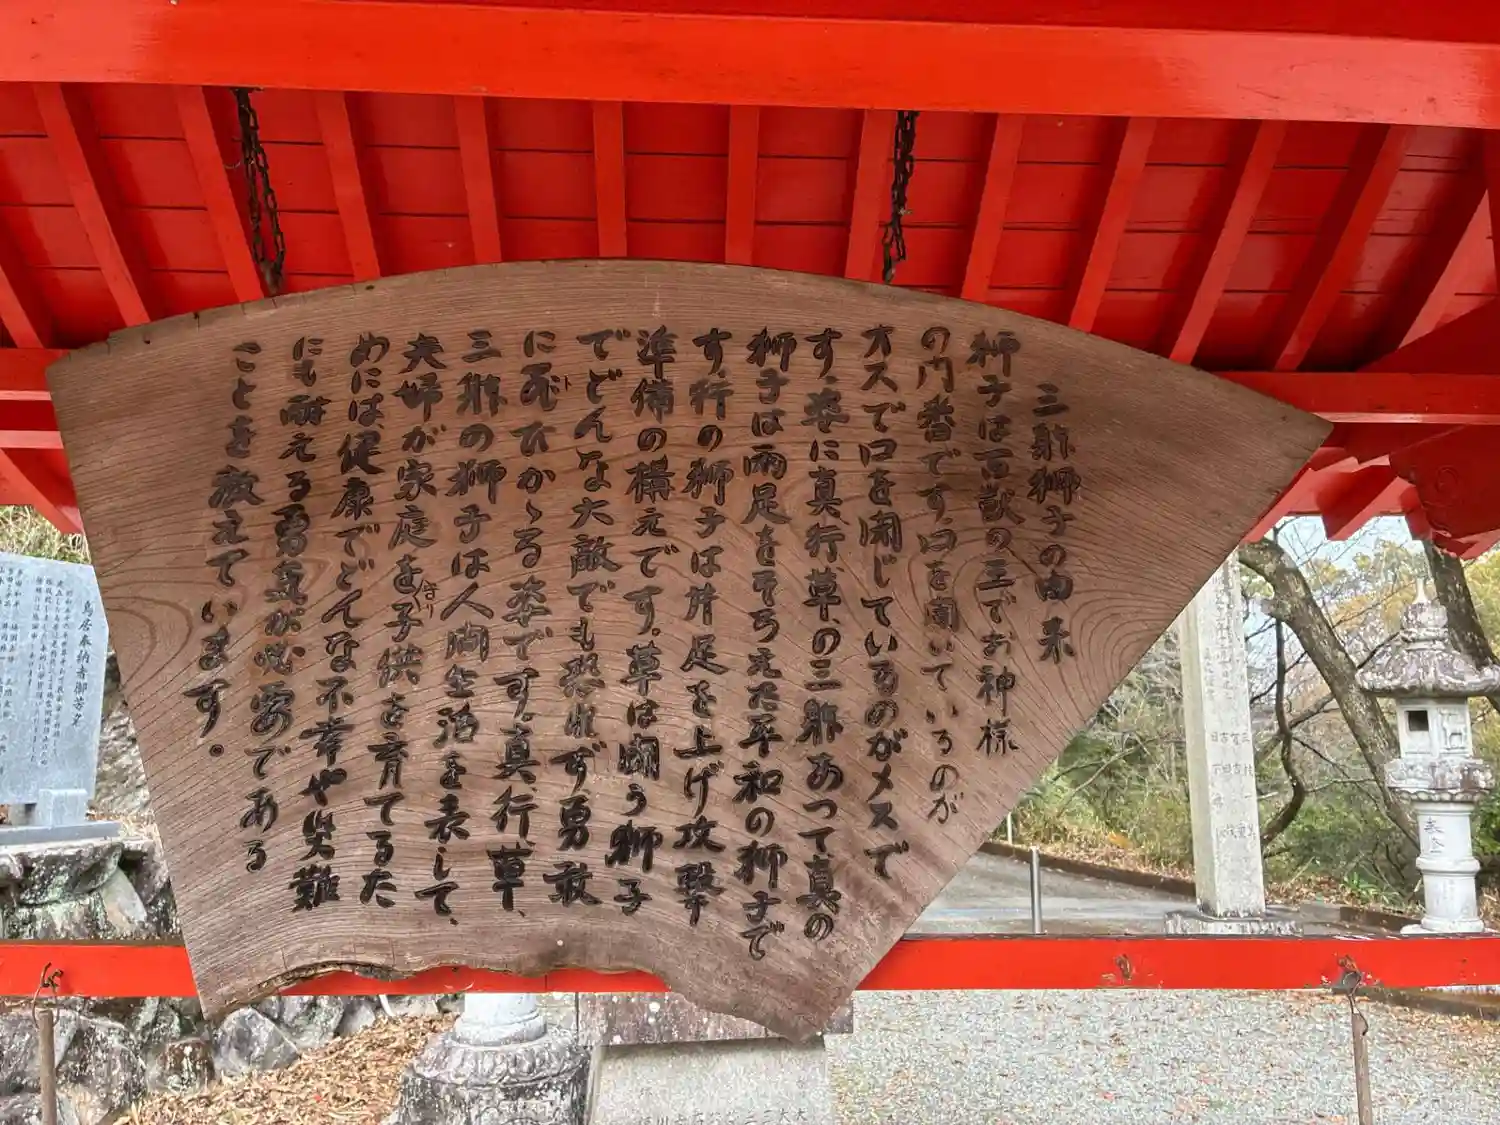 三躰獅子の由来
獅子は百獣の王でお神様
の門番です。口を開いているのが
オスで口を閉じているのがメスで
す。姿に真、行、草、の三躰あって真の
獅子は両足をそろえた平和の獅子で
す。行の獅子は片足を上げ攻撃
準備の構えです。草は闘う獅子
でどんな大敵でも恐れず勇敢
に飛びかゝる姿です。真、行、草、
三躰の獅子は人間生活を表して、
夫婦が家庭を守り子供を育てるた
めには健康でどんな不幸や災難
にも耐える勇気が必要である
ことを教えています。
鳥居奉納者御芳名
奉